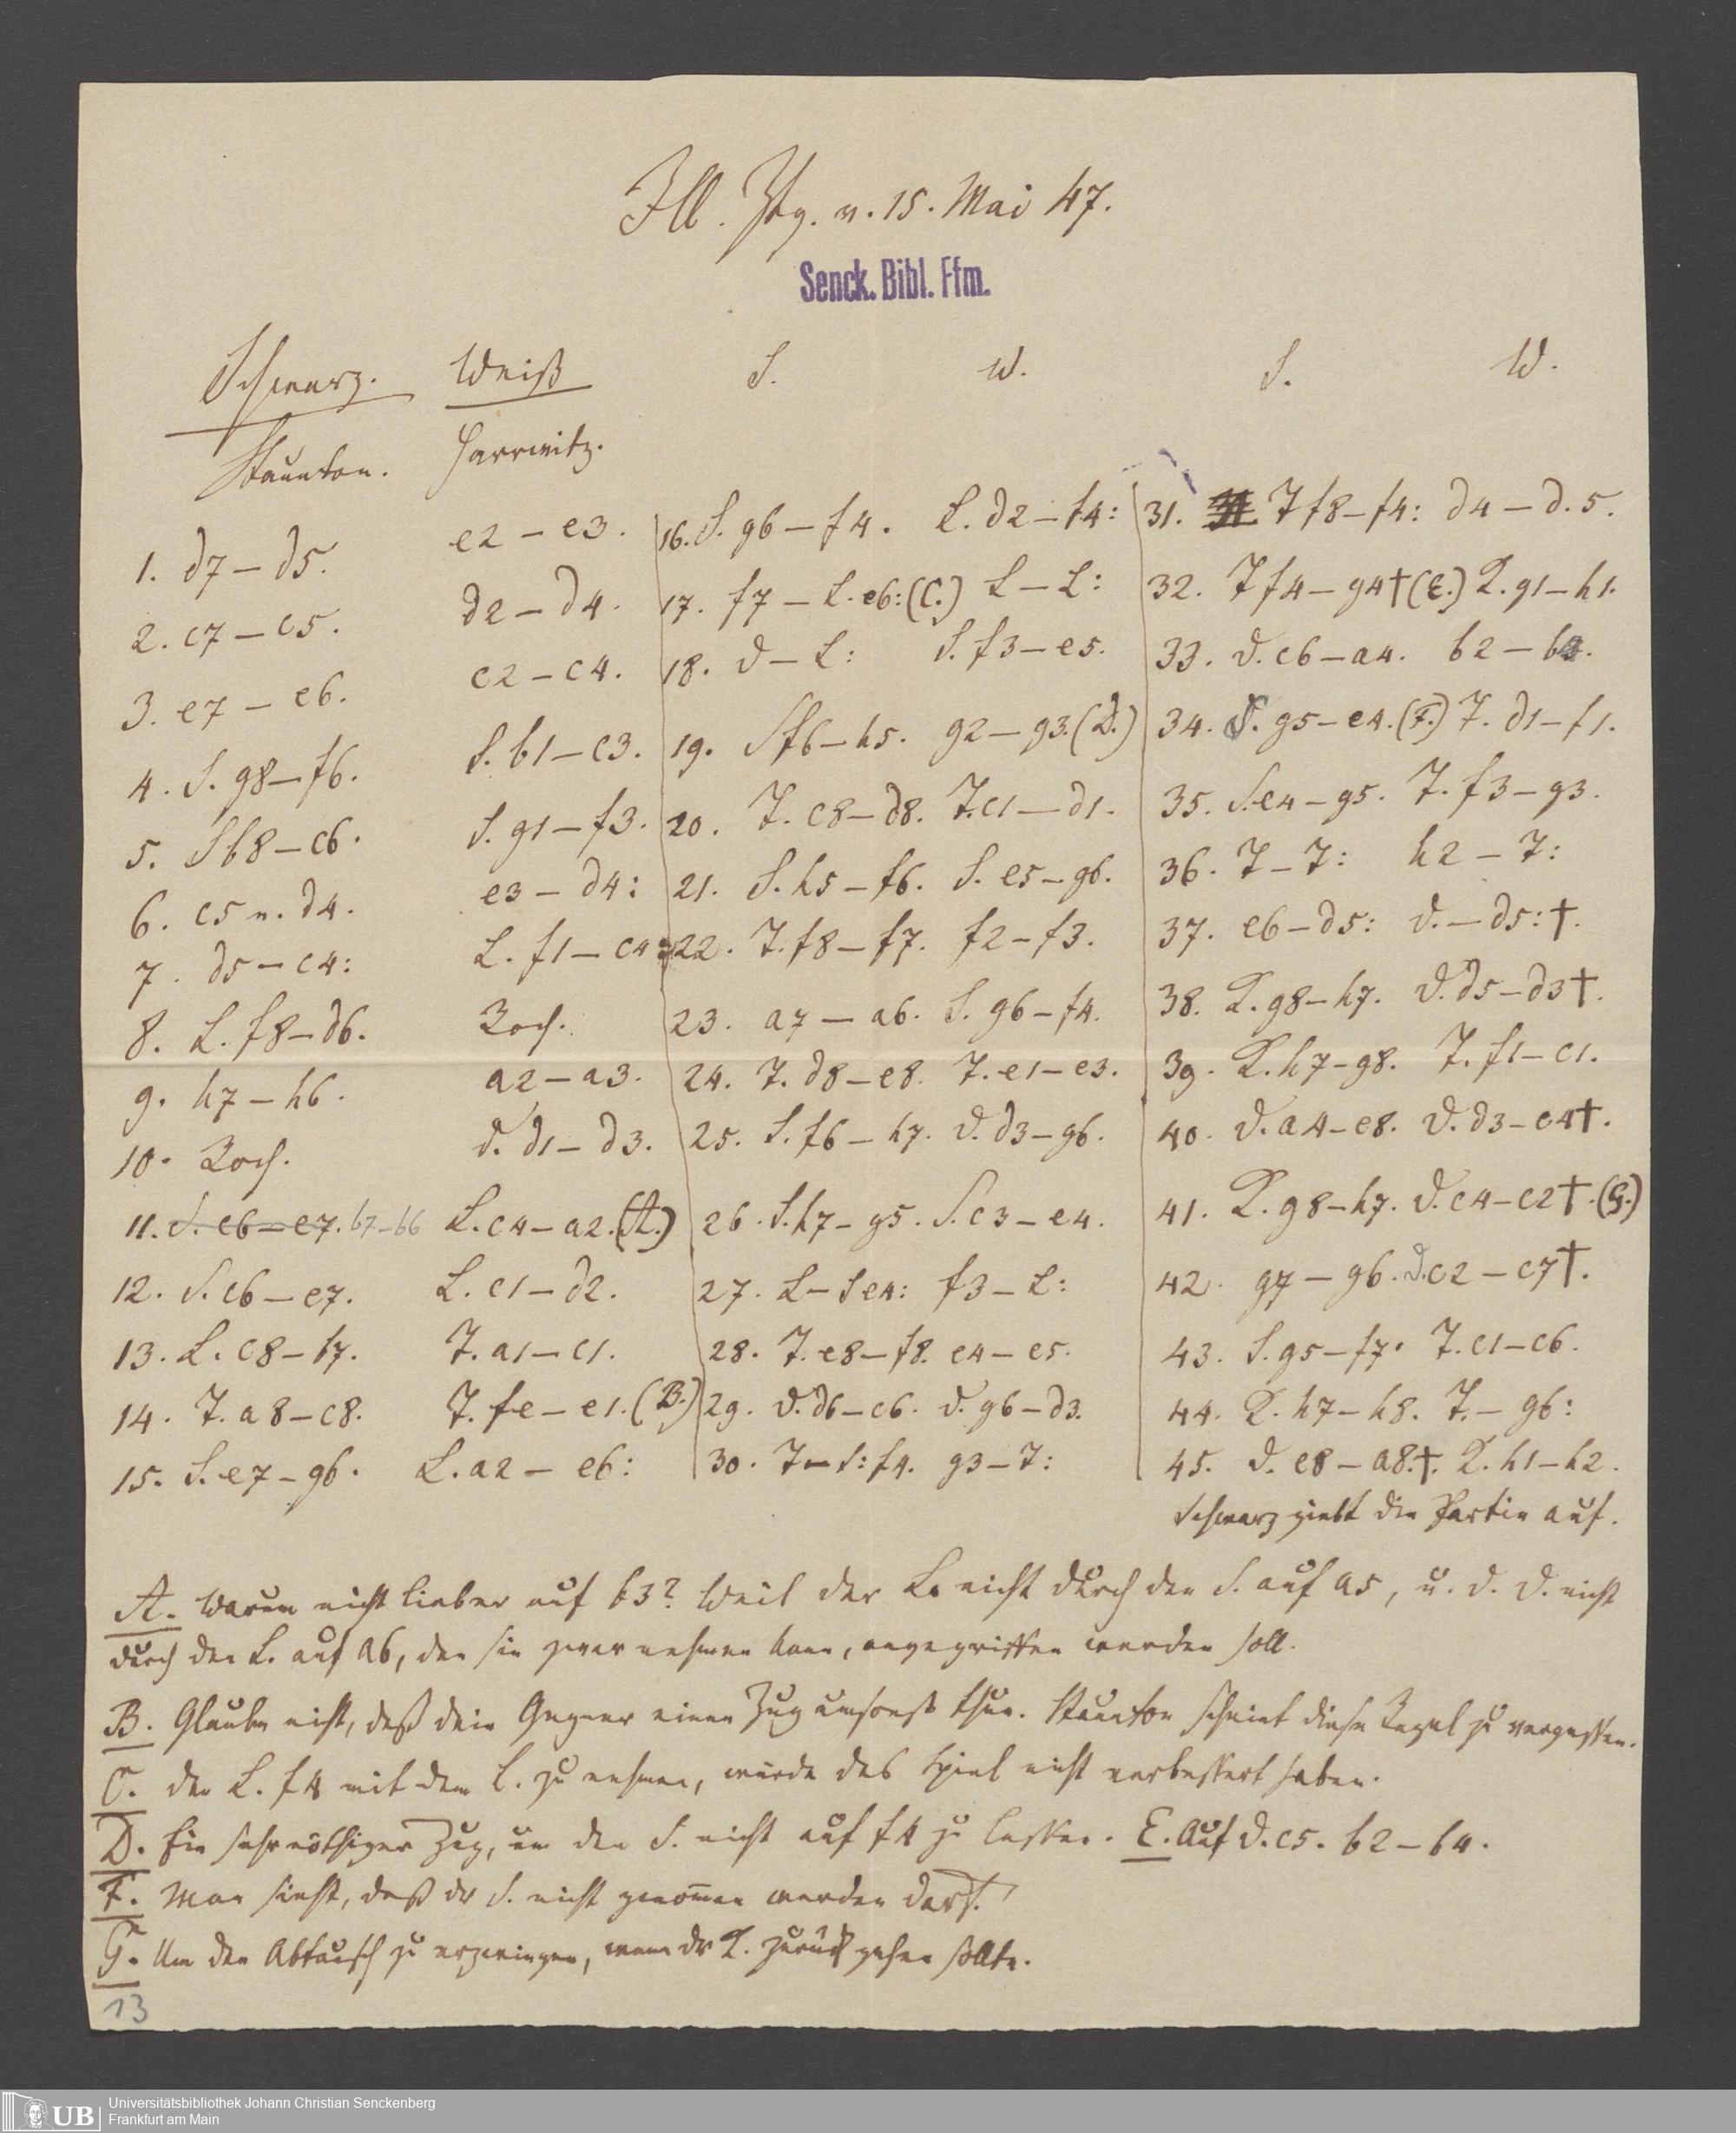 Ill. Ztg. v. 15. Mai 47.
Senck. Bibl. Ffm.
Schwarz. Weiß S. W. S. W.
Staunton. Harrwitz.
1. d7 – d5. e2 – e3.
2. c7 – c5. d2 – d4.
3. e7 – e6. c2 – c4.
4. S. g8 – f6. S. b1 – c3.
5. S b8 – c6. S. g1 – f3.
6. c5 n. d4. e3 – d4:
7. d5 – c4: L. f1 – c4:
8. L. f8 – d6. Roch.
9. h7 – h6. a2 – a3.
10. Roch. D. d1 – d3.
11. S. c6 – e7. b7 – b6 L. c4 – a2. (A.)
12. S. c6 – e7. L. c1 – d2.
13. L. c8 – b7. T. a1 – c1.
14. T. a8 – c8. T. fe – e1. (B.)
15. S. e7 – g6. L. a2 – e6:
16. S. g6 – f4. L. d2 – f4:
17. f7 – L. e6: (C.) L – L:
18. D – L: S. f3 – e5.
19. S f6 – h5. g2 – g3. (D.)
20. T. c8 – d8. T. c1 – d1.
21. S. h5 – f6. S. e5 – g6.
22. T. f8 – f7. f2 – f3.
23. a7 – a6. S. g6 – f4.
24. T. d8 – e8. T. e1 – e3.
25. S. f6 – h7. D. d3 – g6.
26. S. h7 – g5. S. c3 – e4.
27. L – S e4: f3 – L:
28. T. e8 – f8. e4 – e5.
29. D. d6 – c6. D. g6 – d3.
30. T – S: f4. g3 – T:
31. T f8 – f4: d4 – d. 5.
32. T f4 – g4 † (E.) K. g1 – h1.
33. D. c6 – a4. b2 – b3.
34. S. g5 – e4. (F.) T. d1 – f1.
35. S. e4 – g5. T. f3 – g3.
36. T – T: h2 – T:
37. e6 – d5: D. – d5: †.
38. K. g8 – h7. D. d5 – d3 †.
39. K. h7 – g8. T. f1 – c1.
40. D. a4 – e8. D. d3 – c4 †.
41. K. g8 – h7. D. c4 – c2 †. (G.)
42. g7 – g6. D. c2 – c7 †.
43. S. g5 – f7. T. c1 – c6.
44. K. h7 – h8. T. – g6:
45. D. e8 – a8. †. K. h1 – h2.
Schwarz giebt die Partie auf.
A. Warum nicht lieber auf b3? Weil der L. nicht durch den S. auf a5, u. d. D. nicht
durch den L. auf a6, den sie zwar nehmen kann, angegriffen werden soll.
B. Glaube nicht, daß dein Gegner einen Zug umsonst thue. Staunton scheint diese Regel zu vergessen.
C. den L. f4 mit dem L. zu nehmen, würde das Spiel nicht verbessert haben.
D. Ein sehr nöthiger Zug, um den S. nicht auf f4 zu lassen. E. Auf D. c5. b2 – b4.
F. Man sieht, daß der S. nicht genommen werden darf.
G. Um den Abtausch zu erzwingen, wenn der K. zurück gehen sollte.
13
UB
Universitätsbibliothek Johann Christian Senckenberg
Frankfurt am Main